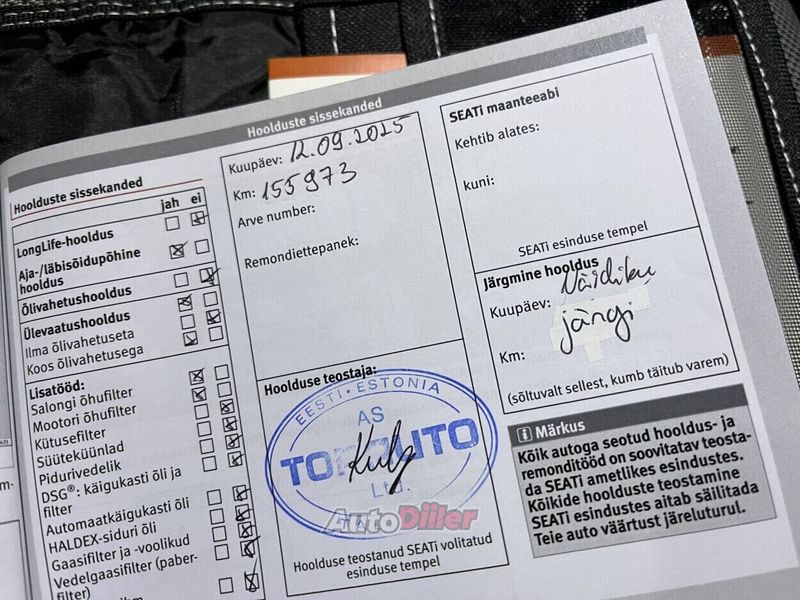 Hoolduste sissekanded
Hoolduste sissekanded
jah ei
LongLife-hooldus
Aja-/läbisõidupõhine
hooldus
Õlivahetushooldus
Ülevaatushooldus
Ilma õlivahetuseta
Koos õlivahetusega
Lisatööd:
Salongi õhufilter
Mootori õhufilter
Kütusefilter
Süüteküünlad
Pidurivedelik
DSG®: käigukasti õli ja
filter
Automaatkäigukasti õli
HALDEX-siduri õli
Gaasifilter ja -voolikud
Vedelgaasifilter (paber-
filter)
Kuupäev: 12.09.2025
Km: 155973
Arve number:
Remondiettepanek:
Hoolduse teostaja:
EESTI · ESTONIA
AS
TOPAUTO
Ltd.
AutoDiiler
Hoolduse teostanud SEATi volitatud
esinduse tempel
SEATi maanteeabi
Kehtib alates:
kuni:
SEATi esinduse tempel
Järgmine hooldus
Kuupäev: Näidiku
järgi
Km:
(sõltuvalt sellest, kumb täitub varem)
i Märkus
Kõik autoga seotud hooldus- ja
remonditööd on soovitatav teosta-
da SEATi ametlikes esindustes.
Kõikide hoolduste teostamine
SEATi esindustes aitab säilitada
Teie auto väärtust järeluturul.